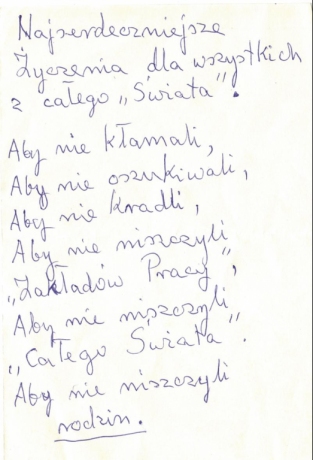 Najserdeczniejsze
Życzenia dla wszystkich
z całego „Świata".
Aby nie kłamali,
Aby nie oszukiwali,
Aby nie kradli,
Aby nie niszczyli
„Zakładów Pracy",
Aby nie niszczyli
„Całego Świata".
Aby nie niszczyli
rodzin.